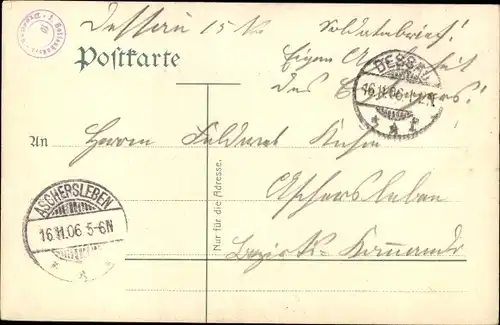 Dessau 15
Soldatenbrief!
Postkarte
Eigene Angelegenheit
des Empfängers!
DESSAU
16.11.06.
An
Herrn Feldwebel
Aschersleben
Bezirks-Kommando
Nur für die Adresse.
ASCHERSLEBEN
16.11.06 5-6N